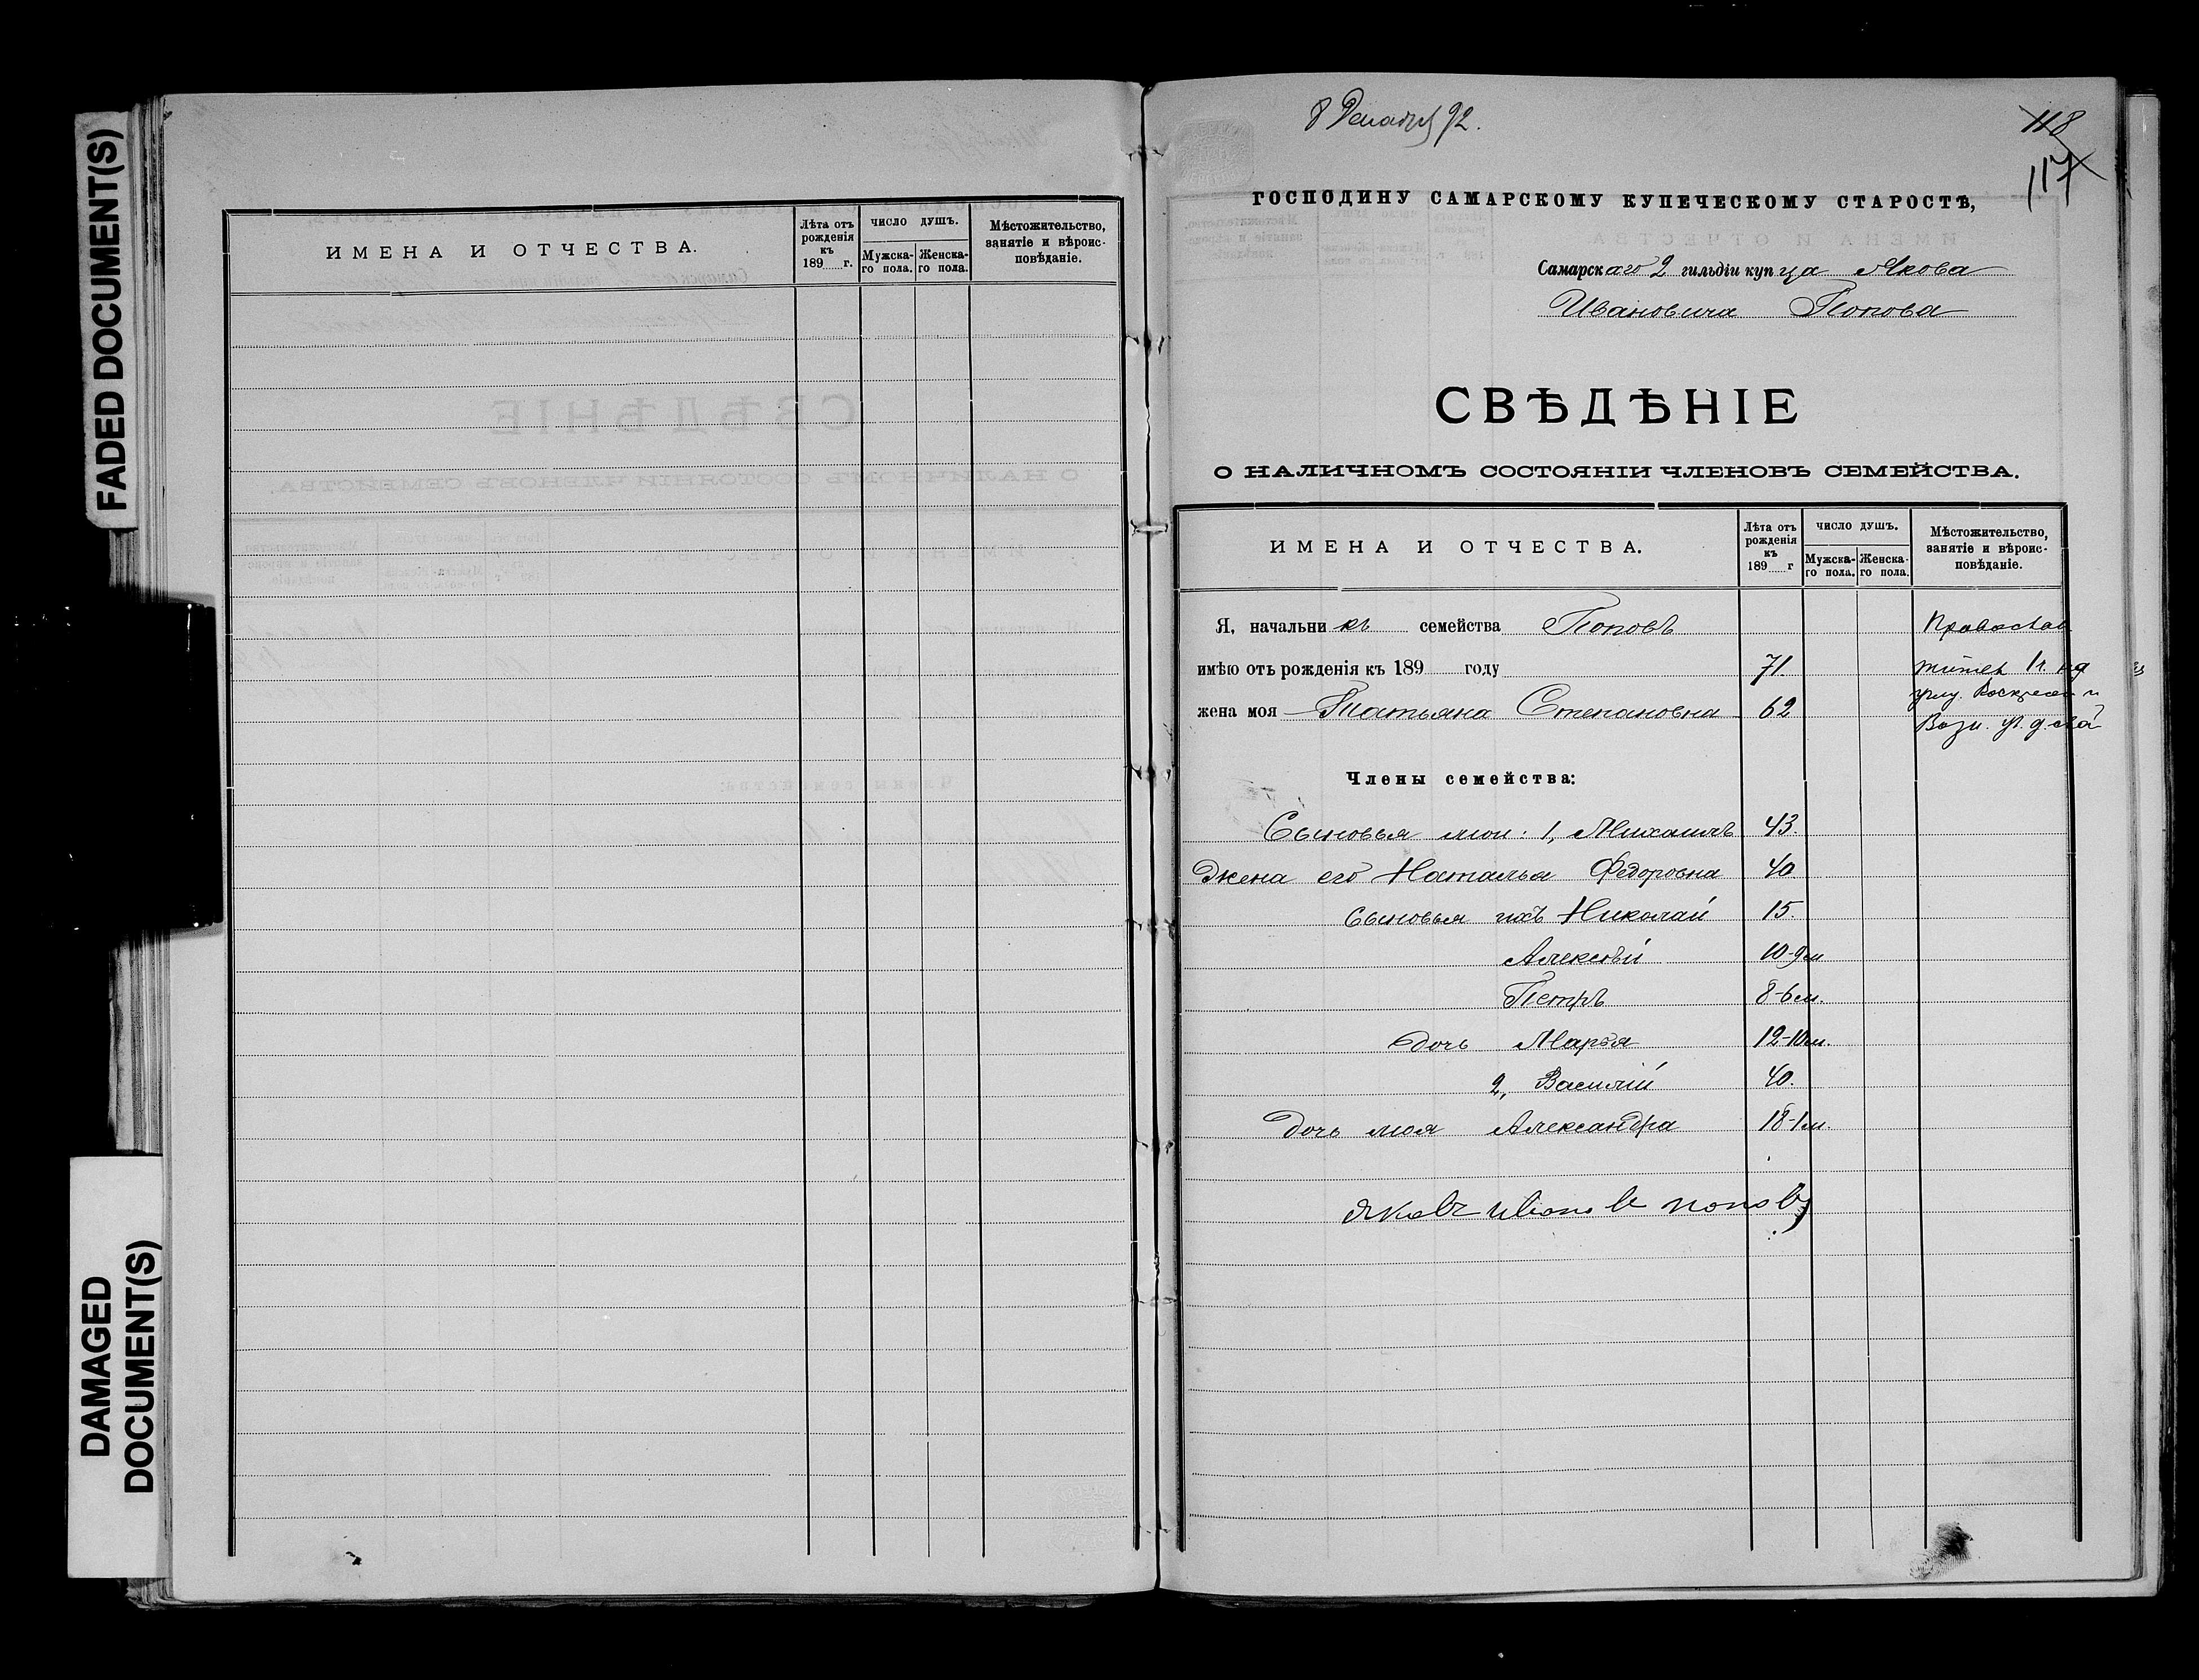 FADED DOCUMENT(S)
DAMAGED
DOCUMENT(S)
ИМЕНА И ОТЧЕСТВА.
Лѣта отъ рожденія къ 189 г.
ЧИСЛО ДУШЪ.
Мужска-го пола.
Женска-го пола.
Мѣстожительство, занятіе и вѣроис-повѣданіе.
8 Декабря 92.
118
117
ГОСПОДИНУ САМАРСКОМУ КУПЕЧЕСКОМУ СТАРОСТѢ,
Самарскаго 2 гильдіи купца Якова
Ивановича Попова
СВѢДѢНІЕ
О НАЛИЧНОМЪ СОСТОЯНІИ ЧЛЕНОВЪ СЕМЕЙСТВА.
ИМЕНА И ОТЧЕСТВА.
Лѣта отъ рожденія къ 189 г
ЧИСЛО ДУШЪ.
Мужска-го пола.
Женска-го пола.
Мѣстожительство, занятіе и вѣроис-повѣданіе.
Я, начальникъ семейства Поповъ Православ
имѣю отъ рожденія къ 189 году 71.
жена моя Татьяна Степановна 62
Члены семейства:
Сыновья мои: 1, Михаилъ 43.
Жена его Наталья Федоровна 40
Сыновья ихъ Николай 15.
Алексѣй 10-9м
Петръ 8-6м.
дочь Марья 12-10м.
2, Василій 40.
Дочь моя Александра 18-1м.
Яковъ Ивановъ Поповъ